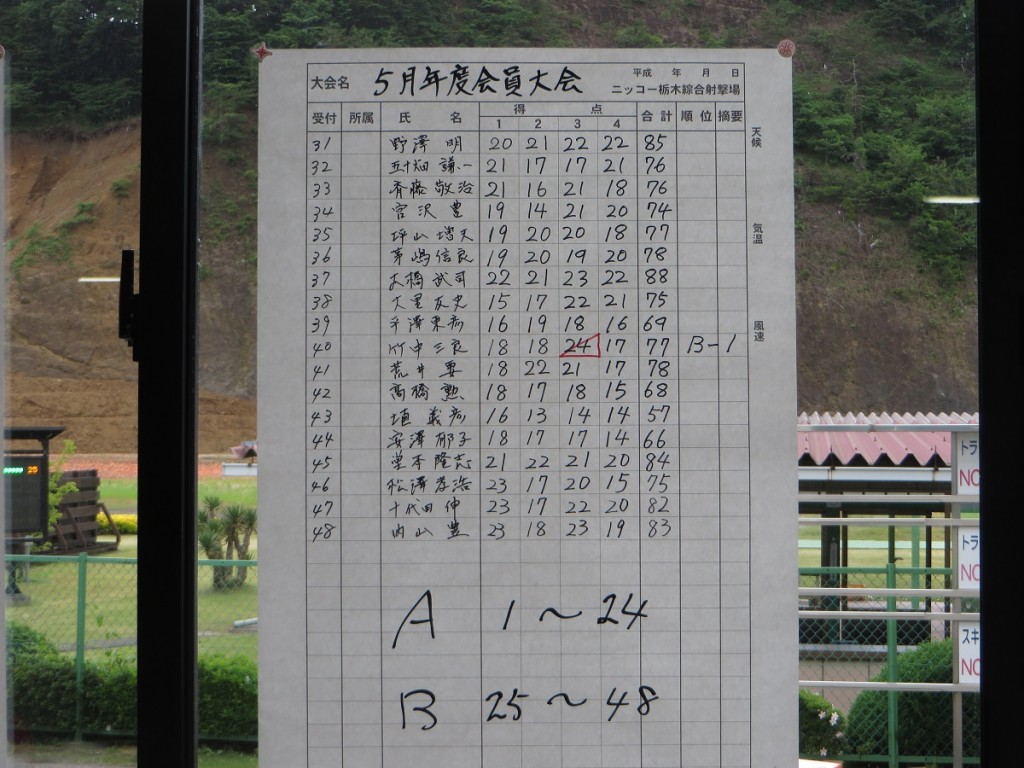 大会名 5月年度会員大会 平成 年 月 日
ニッコー栃木綜合射撃場
受付 所属 氏 名 得 点 合計 順位 摘要
1 2 3 4
天候
気温
風速
31 野澤 明 20 21 22 22 85
32 五十畑 謙一 21 17 17 21 76
33 斉藤 敬治 21 16 21 18 76
34 宮沢 豊 19 14 21 20 74
35 坪山 増夫 19 20 20 18 77
36 茅嶋 信良 19 20 19 20 78
37 大橋 武司 22 21 23 22 88
38 大里 友史 15 17 22 21 75
39 平澤 東彦 16 19 18 16 69
40 竹中 三良 18 18 24 17 77 B-1
41 荒井 要 18 22 21 17 78
42 高橋 勲 18 17 18 15 68
43 義彦 16 13 14 14 57
44 安澤 郁子 18 17 17 14 66
45 堂本 隆志 21 22 21 20 84
46 松澤 孝浩 23 17 20 15 75
47 十代田 伸 23 17 22 20 82
48 内山 豊 23 18 23 19 83
A 1〜24
B 25〜48
トラ
NO
トラ
NO
スキ
NO